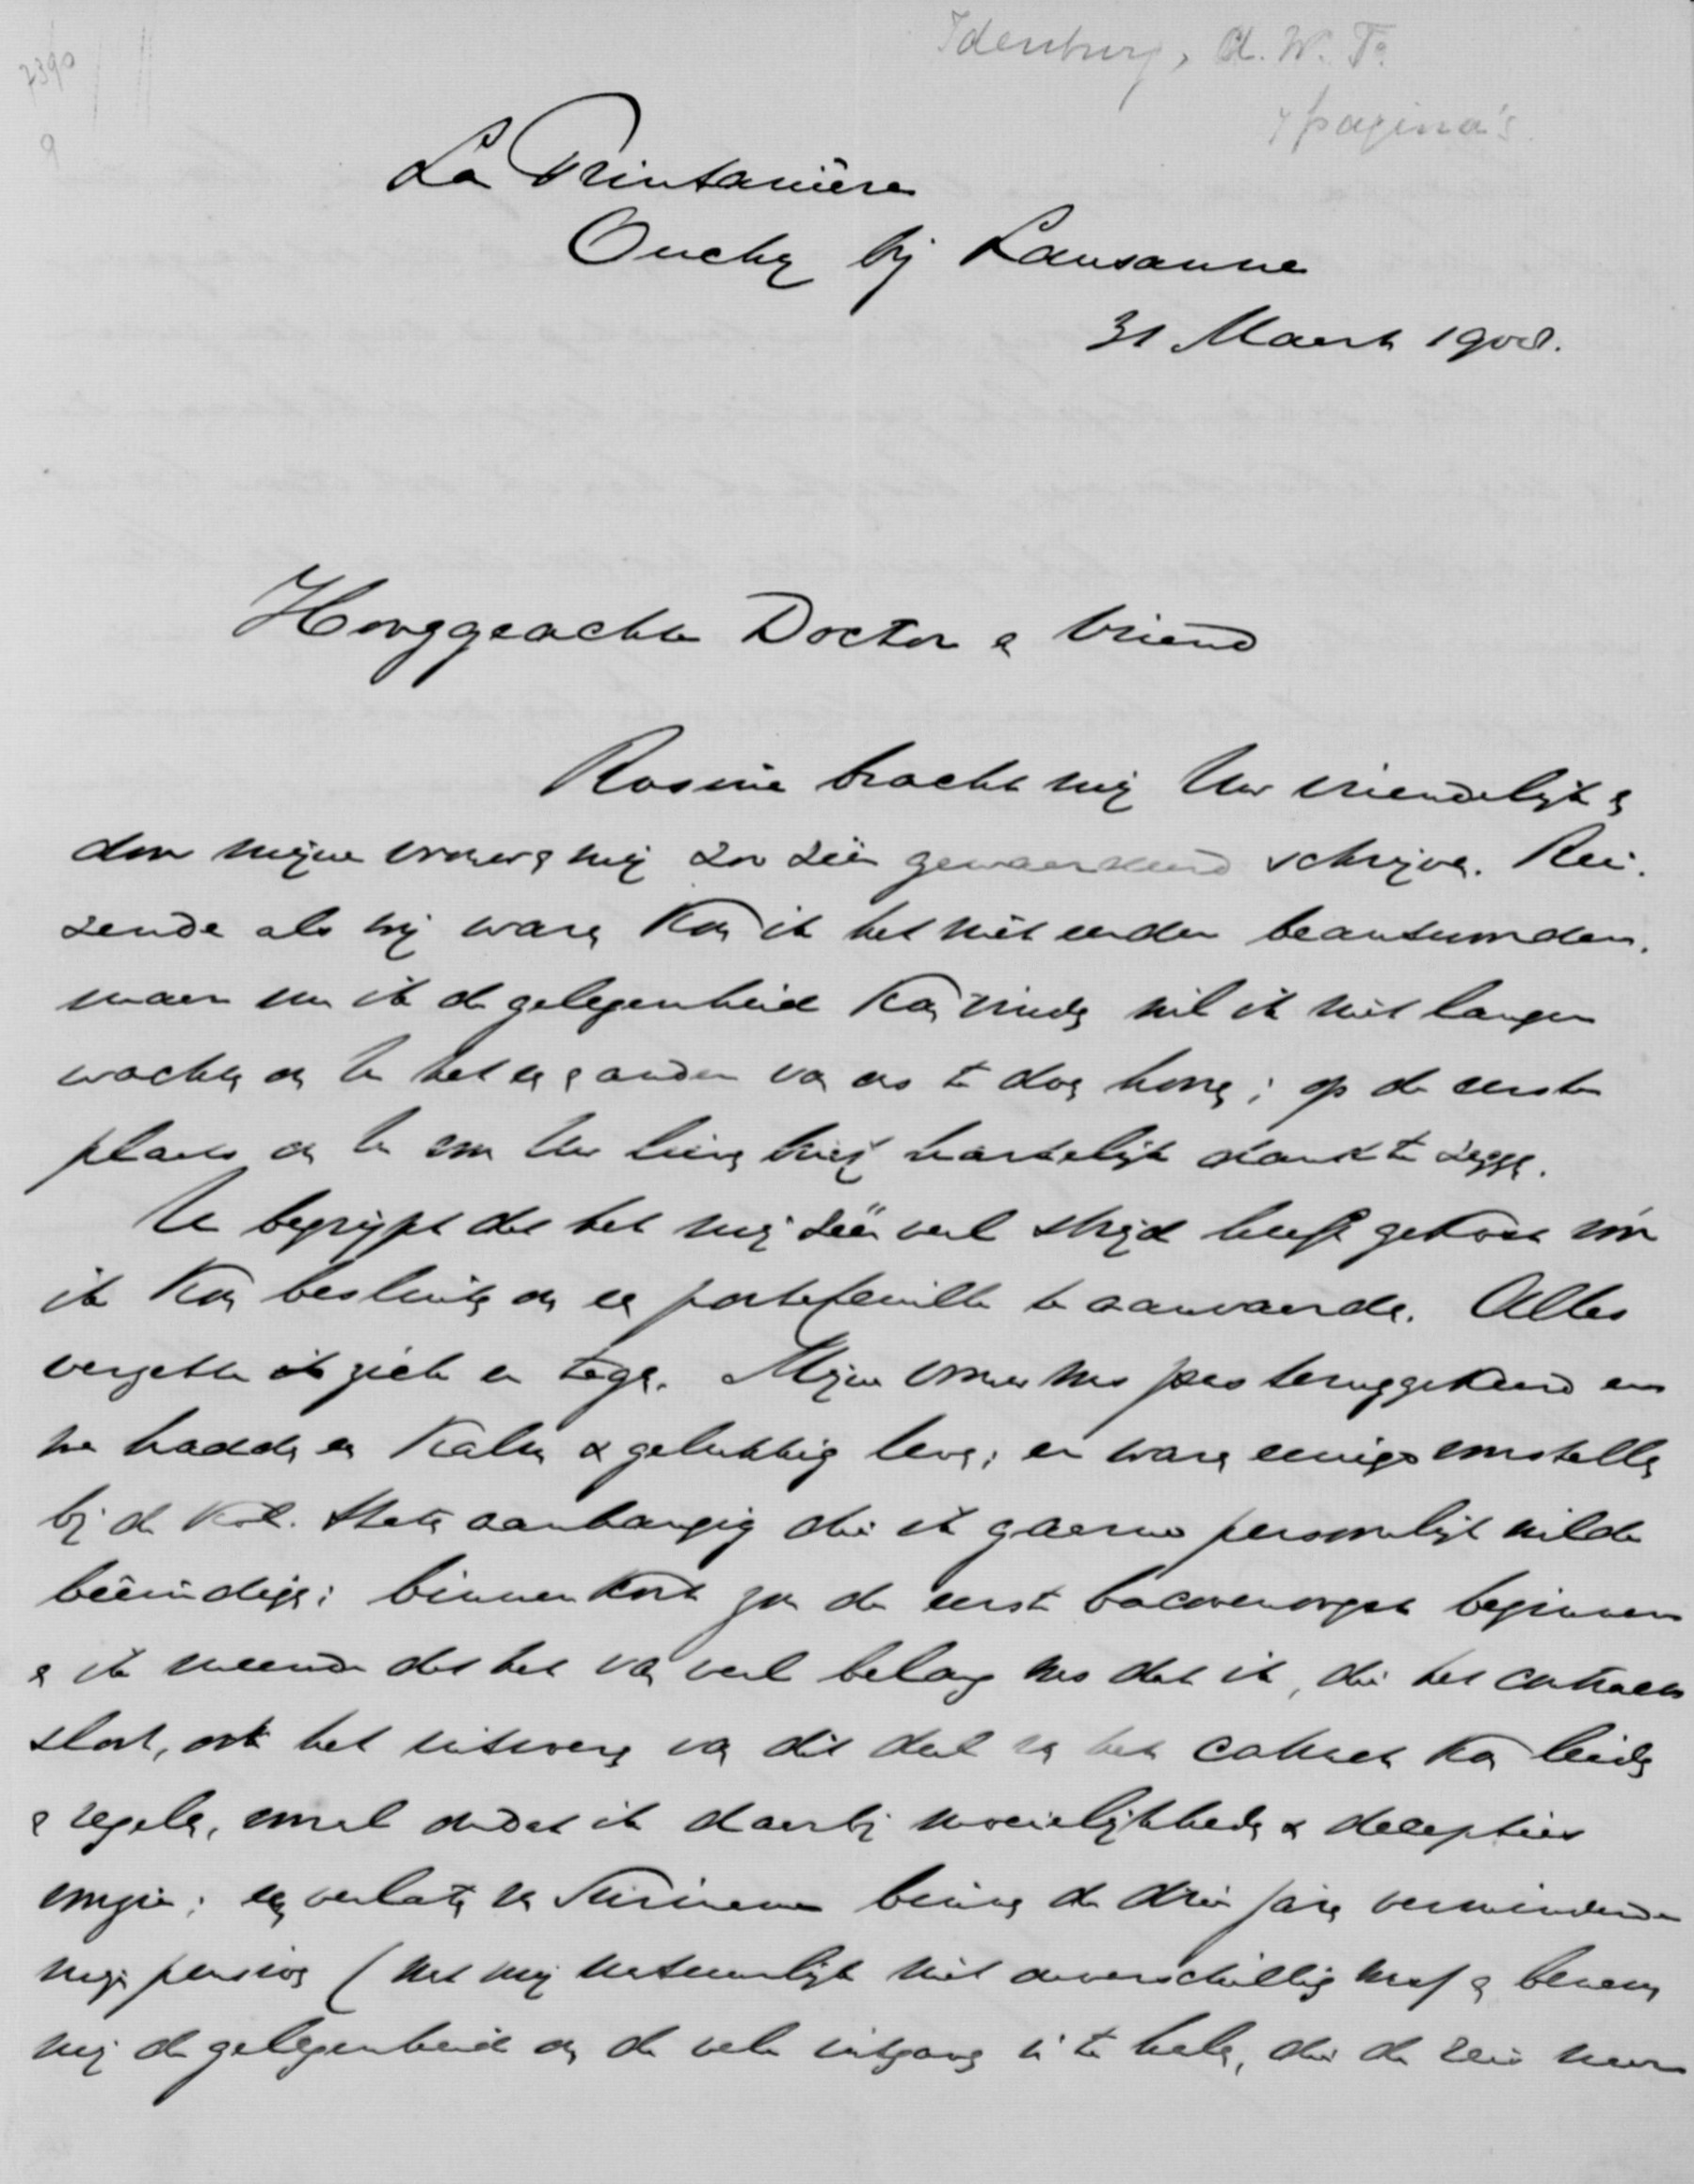 7390
9
Idenburg, A. W. F.
4 pagina's.
La Printanière
Ouchy bij Lausanne
31 Maart 1908.
Hooggeachte Doctor en Vriend
Rosine bracht mij Uw vriendelijk en
door mijne vrouw en mij zoo zéér gewaardeerd schrijven. Rei-
zende als wij waren kon ik het niet eerder beantwoorden.
maar nu ik de gelegenheid kan vinden wil ik niet langer
wachten om U het een en ander van ons te doen hooren; op de eerste
plaats om U voor Uw lieven brief hartelijk dank te zeggen.
U begrijpt dat het mij zéér veel strijd heeft gekost vóór
ik kon besluiten om een portefeuille te aanvaarden. Alles
verzette zich er tegen. Mijne vrouw was pas teruggekeerd en
we hadden een kalm & gelukkig leven; er waren eenige voorstellen
bij de Kol. Staten aanhangig die ik gaarne persoonlijk wilde
beëindigen; binnenkort zou de eerste bacovenoogst beginnen
en ik meende dat het van veel belang was dat ik, die het contract
sloot, ook het uitvoeren van dit deel van het contract kon leiden
en regelen, vooral omdat ik daarbij moeielijkheden & decepties
voorzie; een verlaten van Suriname binnen de drie jaren verminderde
mijn pensioen (wat mij natuurlijk niet onverschillig was) en benam
mij de gelegenheid om de vele uitgaven in te halen, die de reis naar